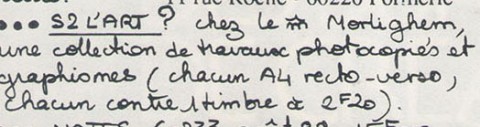 11 rue Roche - 60220 Formerie
••• S2 L'ART ? chez le Morlighem,
une collection de travaux photocopiés et
graphismes (chacun A4 recto-verso,
chacun contre 1 timbre à 2F20).